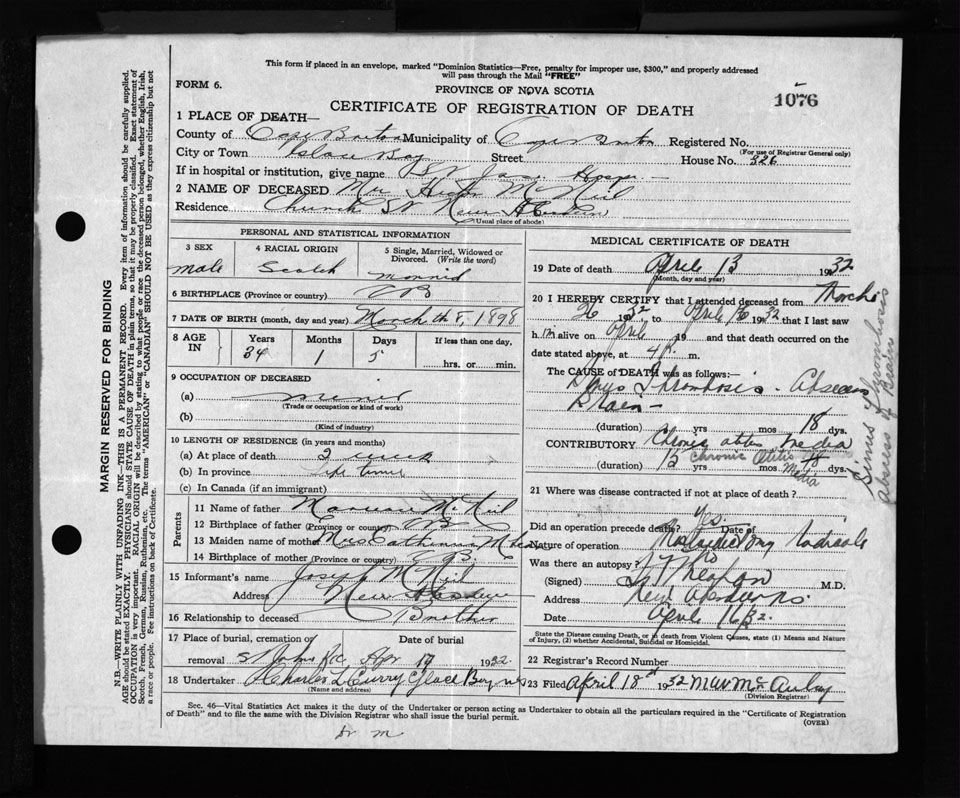 This form if placed in an envelope, marked "Dominion Statistics—Free, penalty for improper use, $300," and properly addressed
will pass through the Mail "FREE"
FORM 6.
PROVINCE OF NOVA SCOTIA
1076
CERTIFICATE OF REGISTRATION OF DEATH
1 PLACE OF DEATH—
County of Cape Breton Municipality of Cape Breton Registered No.
(For use of Registrar General only)
City or Town Glace Bay Street House No. 326
If in hospital or institution, give name St Hosp
2 NAME OF DECEASED Mr McNeil
Residence Church St New Aberdeen
(Usual place of abode)
PERSONAL AND STATISTICAL INFORMATION
3 SEX 4 RACIAL ORIGIN 5 Single, Married, Widowed or
Divorced. (Write the word)
male Scotch married
6 BIRTHPLACE (Province or country) CB
7 DATE OF BIRTH (month, day and year) March th 8, 1898
8 AGE IN Years Months Days If less than one day,
34 1 5 hrs. or min.
9 OCCUPATION OF DECEASED
(a) miner
(Trade or occupation or kind of work)
(b)
(Kind of industry)
10 LENGTH OF RESIDENCE (in years and months)
(a) At place of death 2 week
(b) In province life time
(c) In Canada (if an immigrant)
Parents
11 Name of father McNeil
12 Birthplace of father (Province or country) CB
13 Maiden name of mother Mrs Catherine
14 Birthplace of mother (Province or country) C.B.
15 Informant's name Joseph McNeil
Address New Aberdeen
16 Relationship to deceased Brother
17 Place of burial, cremation of Date of burial
removal St Johns Apr 17 1932
18 Undertaker Charles L Curry Glace Bay N S
(Name and address)
MEDICAL CERTIFICATE OF DEATH
19 Date of death April 13 1932
(Month, day and year)
20 I HEREBY CERTIFY that I attended deceased from March
26 1932 to April 1932 that I last saw
h im alive on April 19 and that death occurred on the
date stated above, at 4 P. m.
The CAUSE of DEATH was as follows:—
Sinus Thrombosis - Abscess
Brain -
(duration) yrs mos 18 dys.
CONTRIBUTORY Chronic otitis media
Chronic Otitis
Media
(duration) 12 yrs mos dys.
Sinus Thrombosis
Abscess of Brain
21 Where was disease contracted if not at place of death?
Did an operation precede death? Yes. Date of
Nature of operation Mastoidectomy Radicale
Was there an autopsy? No
(Signed) M.D.
Address New Aberdeen N.S.
Date April 16/32
State the Disease causing Death, or in death from Violent Causes, state (1) Means and Nature
of Injury, (2) whether Accidental, Suicidal or Homicidal.
22 Registrar's Record Number
23 Filed April 18th 1932
(Division Registrar)
Sec. 46—Vital Statistics Act makes it the duty of the Undertaker or person acting as Undertaker to obtain all the particulars required in the "Certificate of Registration
of Death" and to file the same with the Division Registrar who shall issue the burial permit.
(OVER)
MARGIN RESERVED FOR BINDING
N.B.—WRITE PLAINLY WITH UNFADING INK—THIS IS A PERMANENT RECORD. Every item of information should be carefully supplied.
AGE should be stated EXACTLY. PHYSICIANS should STATE CAUSE OF DEATH in plain terms, so that it may be properly classified. Exact statement of
OCCUPATION is very important. RACIAL ORIGIN will be described by stating to what people or race the deceased person belonged, whether English, Irish,
Scotch, French, German, Russian, Ruthenian, etc. The terms "AMERICAN" or "CANADIAN" SHOULD NOT BE USED as they express citizenship but not
a race or people. Fee instructions on back of Certificate.